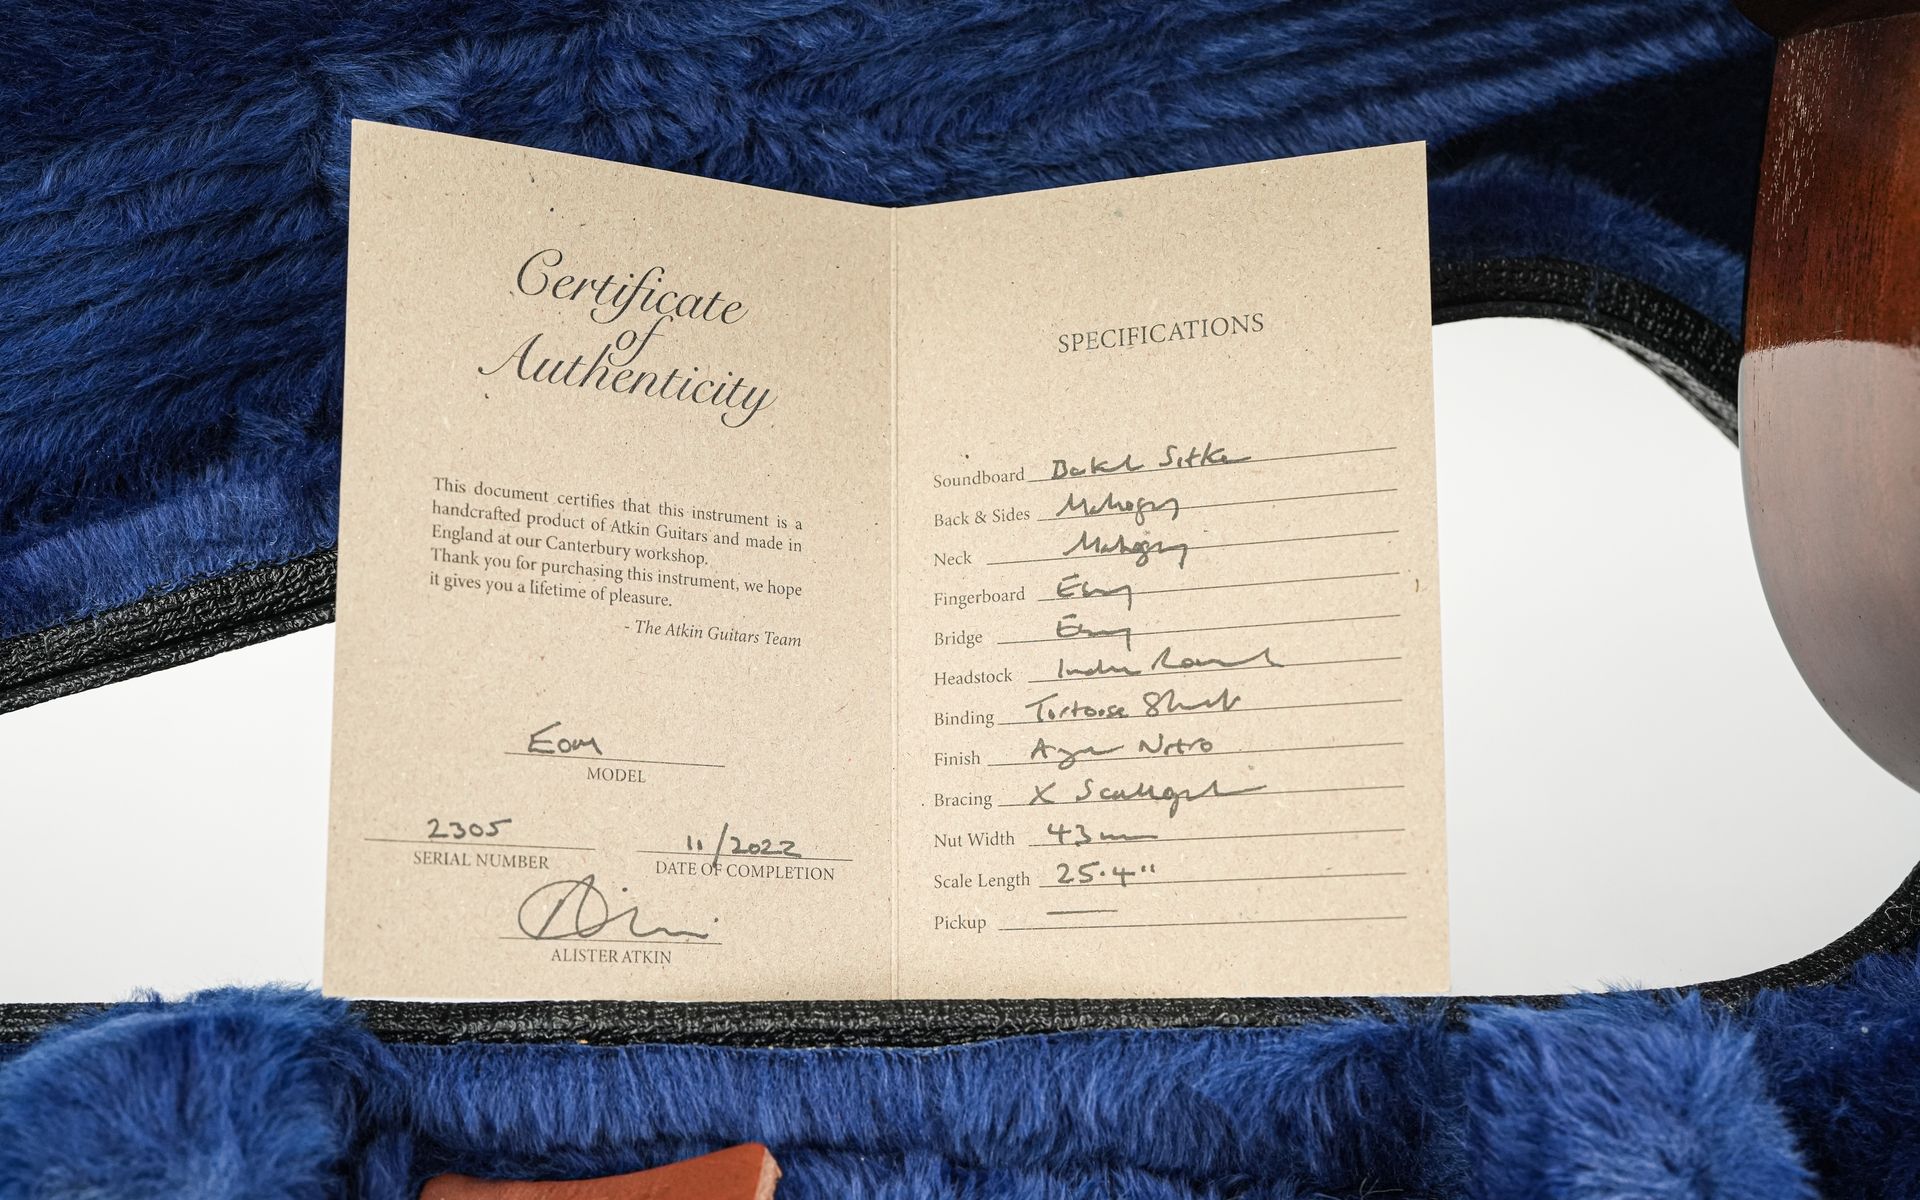 Certificate
of
Authenticity
This document certifies that this instrument is a
handcrafted product of Atkin Guitars and made in
England at our Canterbury workshop.
Thank you for purchasing this instrument, we hope
it gives you a lifetime of pleasure.
- The Atkin Guitars Team
MODEL
2305
SERIAL NUMBER
11/2022
DATE OF COMPLETION
ALISTER ATKIN
SPECIFICATIONS
Soundboard Baked Sitka
Back & Sides Mahogany
Neck Mahogany
Fingerboard Ebony
Bridge Ebony
Headstock Indian
Binding Tortoise Shell
Finish Nitro
Bracing X Scalloped
Nut Width 43mm
Scale Length 25.4"
Pickup —